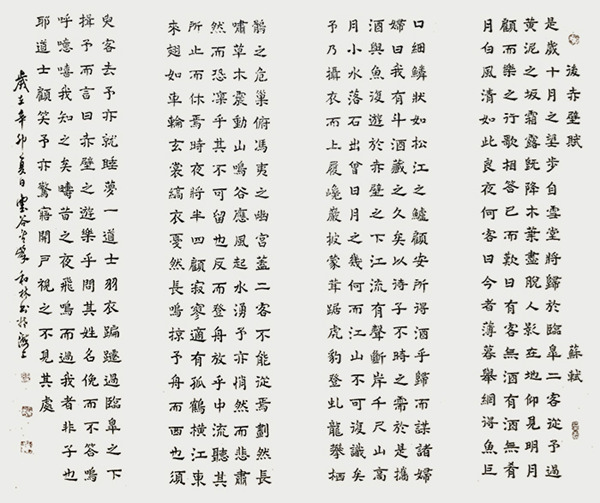 後赤壁賦 蘇軾
是歲十月之望步自雪堂將歸於臨皋二客從予過
黃泥之坂霜露既降木葉盡脫人影在地仰見明月
顧而樂之行歌相答已而歎曰有客無酒有酒無肴
月白風清如此良夜何客曰今者薄暮舉網得魚巨
口細鱗狀如松江之鱸顧安所得酒乎歸而謀諸婦
婦曰我有斗酒藏之久矣以待子不時之需於是攜
酒與魚復遊於赤壁之下江流有聲斷岸千尺山高
月小水落石出曾日月之幾何而江山不可復識矣
予乃攝衣而上履巉巖披蒙茸踞虎豹登虬龍攀栖
鶻之危巢俯馮夷之幽宮蓋二客不能從焉劃然長
嘯草木震動山鳴谷應風起水湧予亦悄然而悲肅
然而恐凜乎其不可留也反而登舟放乎中流聽其
所止而休焉時夜將半四顧寂寥適有孤鶴橫江東
來翅如車輪玄裳縞衣戛然長鳴掠予舟而西也須
臾客去予亦就睡夢一道士羽衣蹁躚過臨皋之下
揖予而言曰赤壁之遊樂乎問其姓名俛而不答嗚
呼噫嘻我知之矣疇昔之夜飛鳴而過我者非子也
耶道士顧笑予亦驚寤開戶視之不見其處
歲在辛卯夏日雲谷堂 和林書於海上